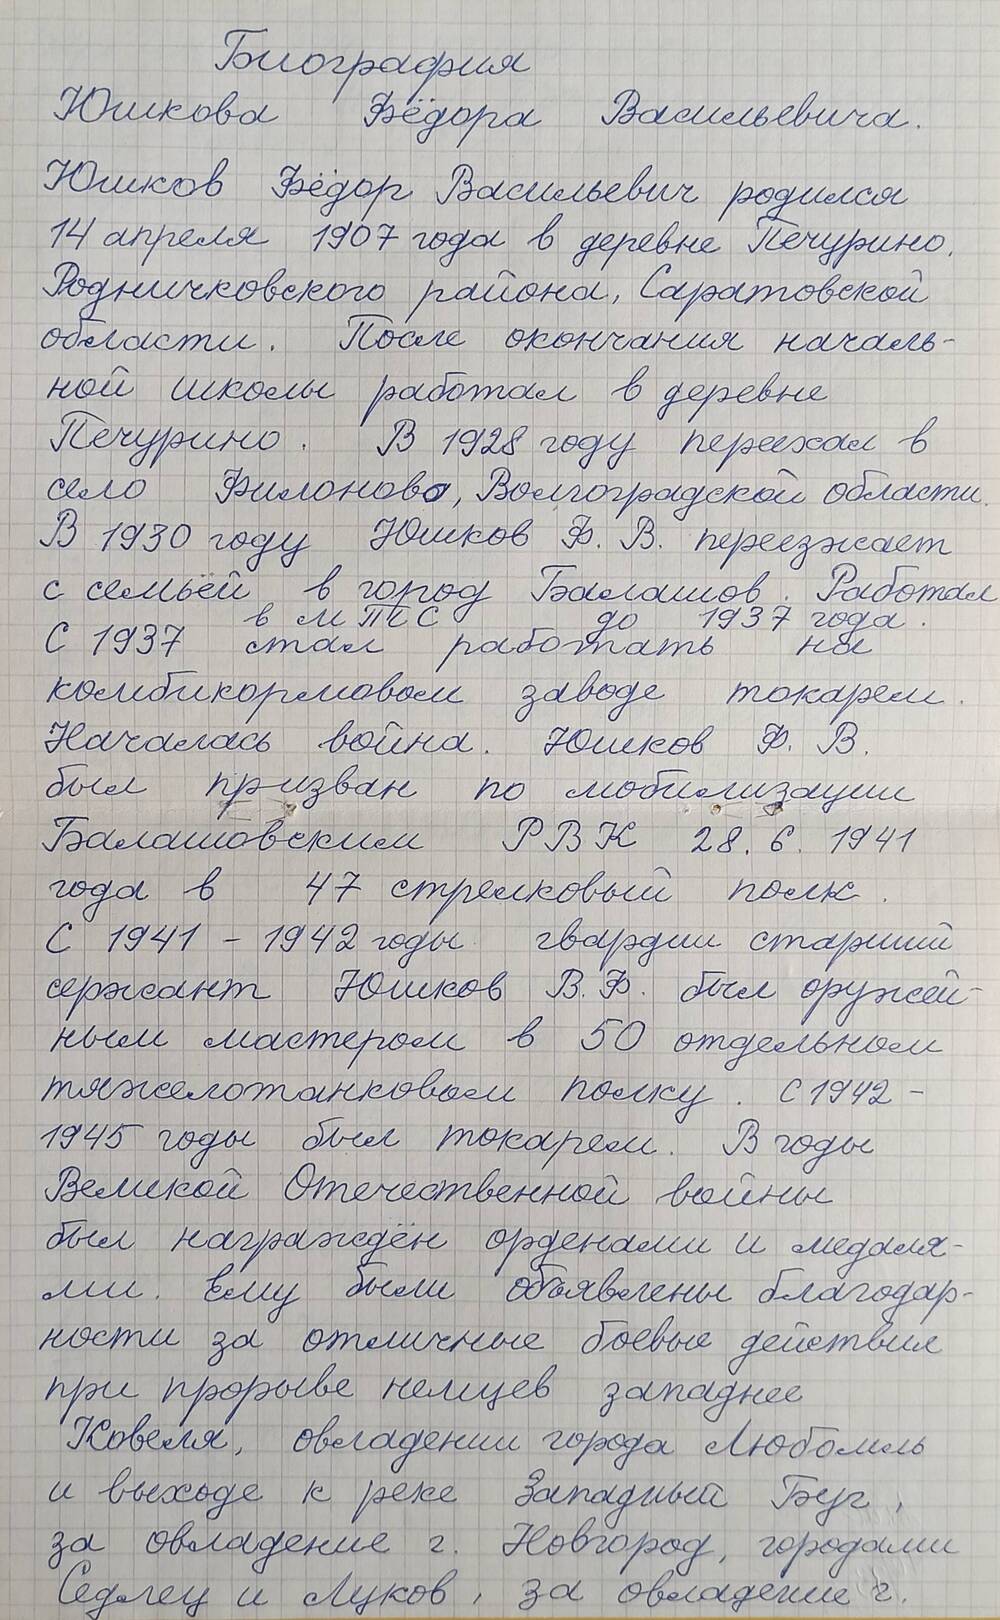 Биография
Юшкова Фёдора Васильевича.
Юшков Фёдор Васильевич родился
14 апреля 1907 года в деревне Печурино,
Родничковского района, Саратовской
области. После окончания началь-
ной школы работал в деревне
Печурино. В 1928 году переехал в
село Филоново, Волгоградской области.
В 1930 году Юшков Ф. В. переезжает
с семьёй в город Балашов. Работал
в МТС до 1937 года.
С 1937 стал работать на
комбикормовом заводе токарем.
Началась война. Юшков Ф. В.
был призван по мобилизации
Балашовским РВК 28. 6. 1941
года в 47 стрелковый полк.
С 1941 - 1942 годы гвардии старший
сержант Юшков В.Ф. был оружей-
ным мастером в 50 отдельном
тяжелотанковом полку. С 1942 -
1945 годы был токарем. В годы
Великой Отечественной войны
был награждён орденами и медаля-
ми. Ему были объявлены благодар-
ности за отличные боевые действия
при прорыве немцев западнее
Ковеля, овладении города Любомль
и выходе к реке Западный Буг,
за овладение г. Новгород, городами
Седлец и Луков, за овладение г.